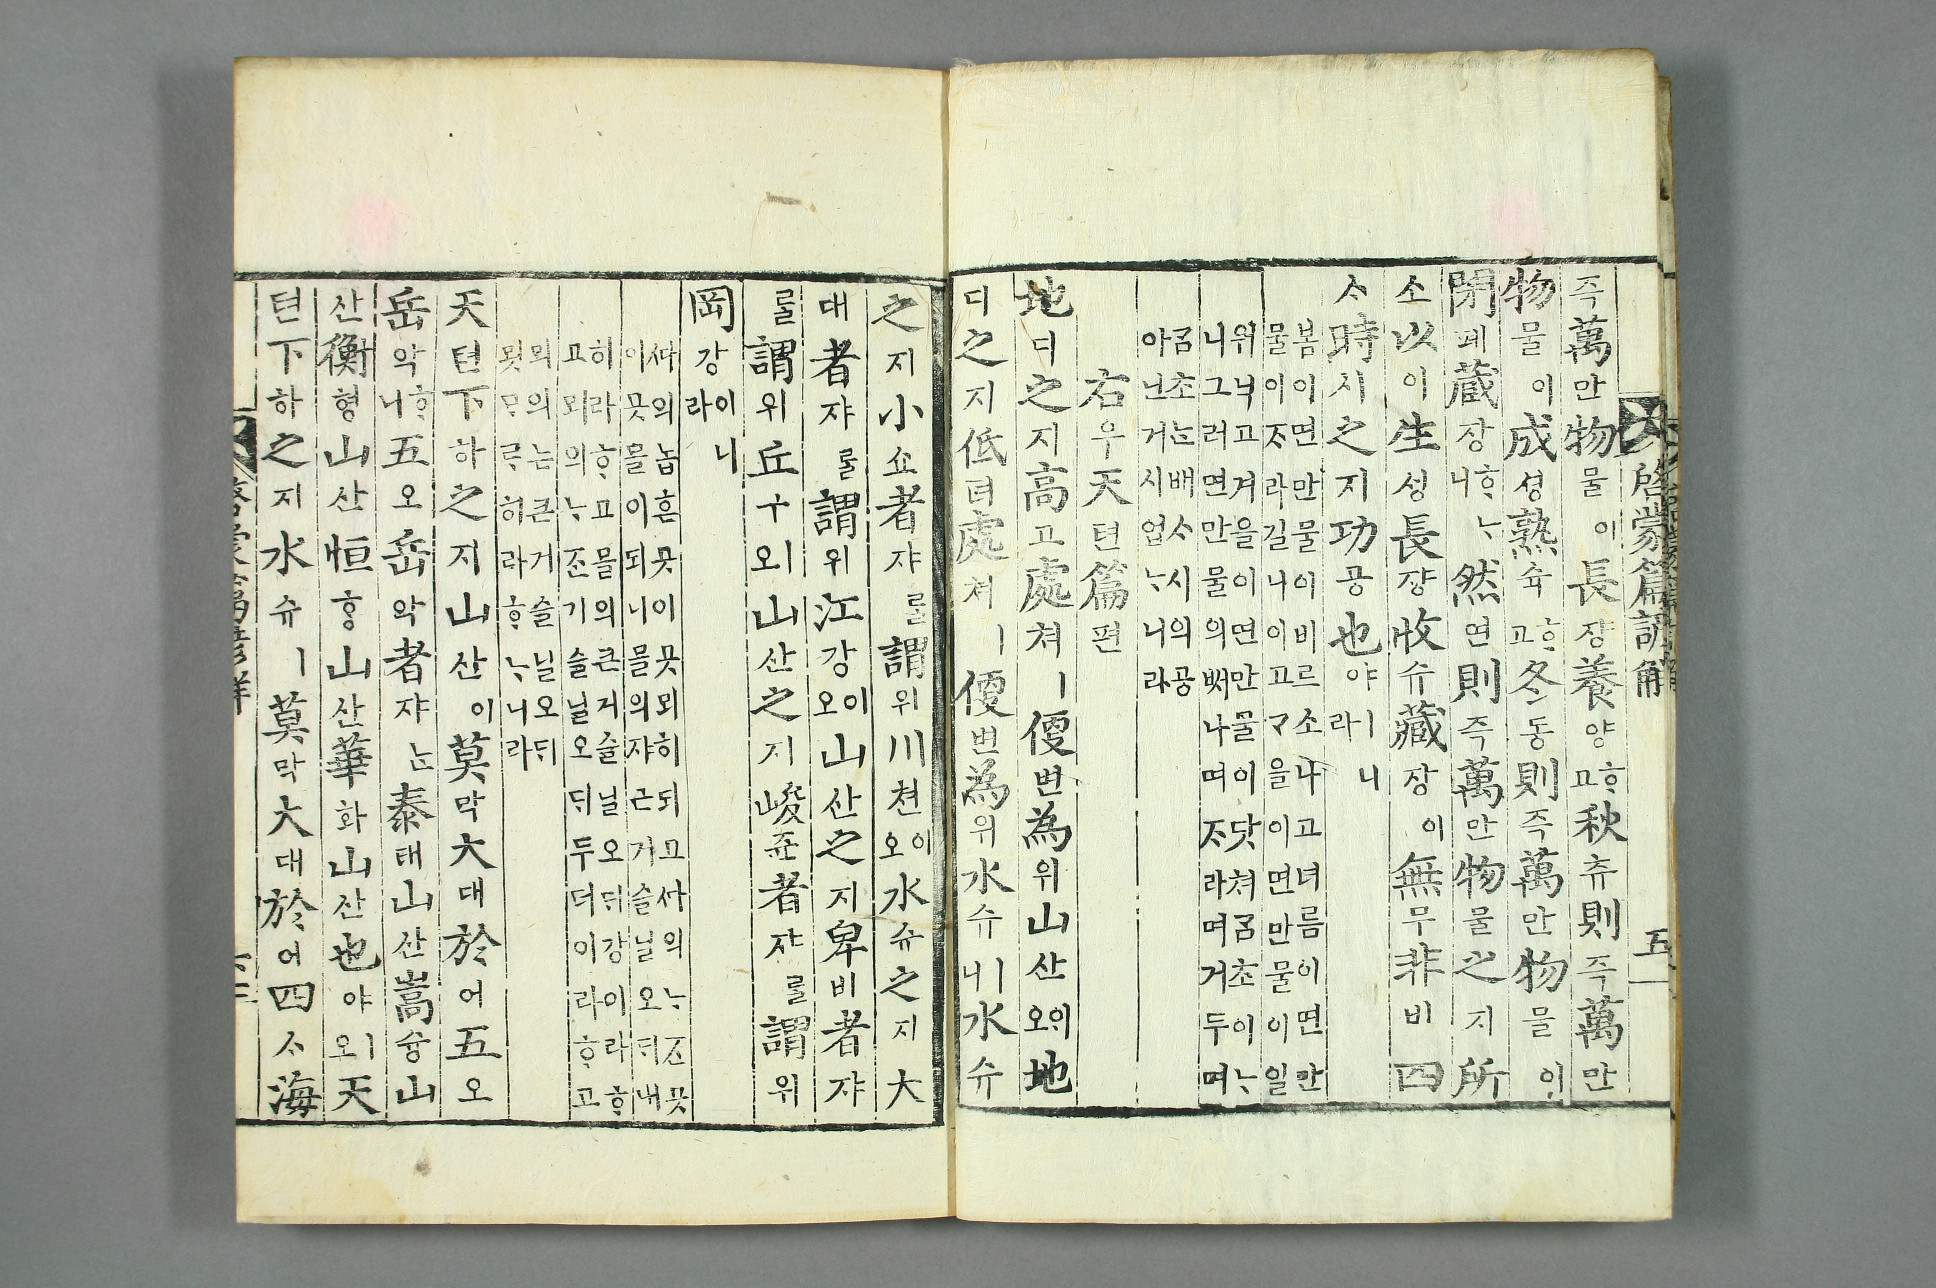 啓蒙篇諺解 五
즉萬만物물이長쟝養양ᄒᆞ고秋츄則즉萬만
物물이成셩熟슉ᄒᆞ고冬동則즉萬만物물이
閉폐藏장ᄒᆞᄂᆞ니然연則즉萬만物물之지所
소以이生성長쟝收슈藏장이無무非비四
ᄉᆞ時시之지功공也야ㅣ니라
봄이면만물이비르소나고녀름이면만
물이ᄌᆞ라길니이고ᄀᆞ을이면만물이일
워닉고겨을이면만물이닷쳐ᄀᆞᆷ초이ᄂᆞ
니그러면만물의ᄡᅥ나며ᄌᆞ라며거두며
ᄀᆞᆷ초ᄂᆞᆫ배ᄉᆞ시의공
아닌거시업ᄂᆞ니라
右우天텬篇편
地디之지高고處쳐ㅣ便변為위山산이오地
디之지低뎌處쳐ㅣ便변為위水슈ㅣ니水슈
之지小쇼者쟈ᄅᆞᆯ謂위川쳔이오水슈之지大
대者쟈ᄅᆞᆯ謂위江강이오山산之지卑비者쟈
ᄅᆞᆯ謂위丘구ㅣ오山산之지峻쥰者쟈ᄅᆞᆯ謂위
岡강이니라
ᄯᅡ의놉흔곳이곳뫼히되고ᄯᅡ의ᄂᆞᄌᆞᆫ곳
이곳믈이되니믈의쟈근거슬닐오ᄃᆡ내
히라ᄒᆞ고믈의큰거슬닐오ᄃᆡ강이라ᄒᆞ
고뫼의ᄂᆞᄌᆞᆫ기슬닐오ᄃᆡ두더이라ᄒᆞ고
뫼의는큰거슬닐오ᄃᆡ
묏ᄆᆞᄅᆞ히라ᄒᆞᄂᆞ니라
天텬下하之지山산이莫막大대於어五오
岳악ᄒᆞ니五오岳악者쟈ᄂᆞᆫ泰태山산嵩슝山
산衡형山산恒ᄒᆞᆼ山산華화山산也야ㅣ오天
텬下하之지水슈ㅣ莫막大대於어四ᄉᆞ海